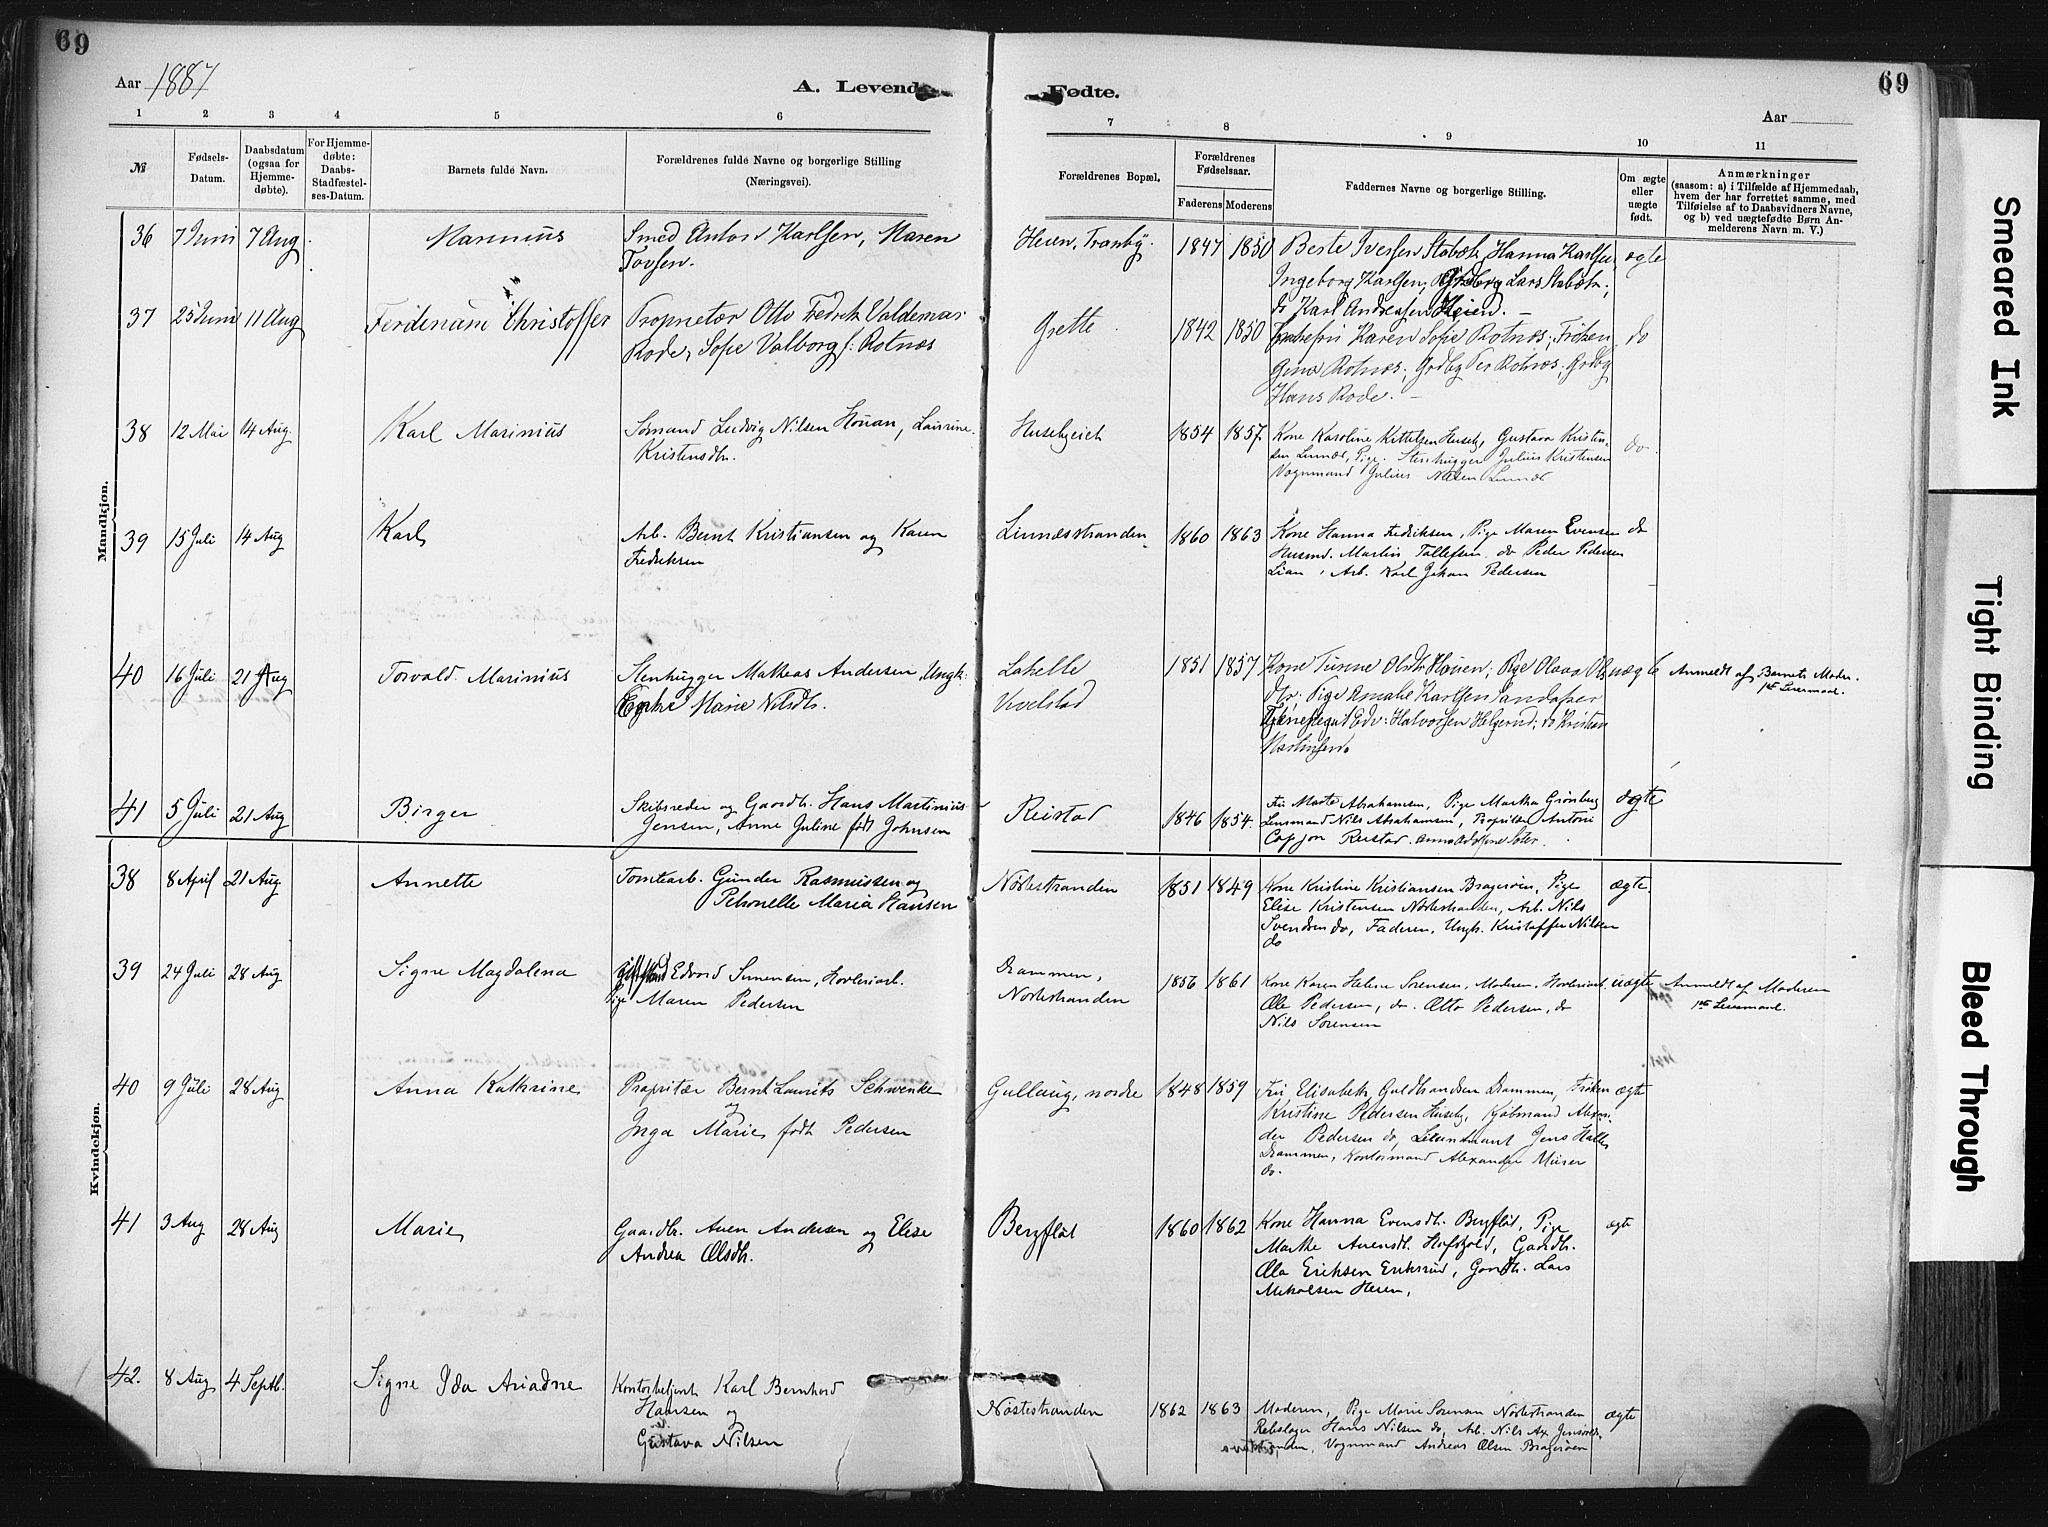 69
69
Aar 1887
A. Levende
Fødte.
Aar
1 2 3 4 5 6 7 8 9 10 11
№
Fødsels-Datum.
Daabsdatum (ogsaa for Hjemme-døbte).
For Hjemme-døbte: Daabs-Stadfæstel-ses-Datum.
Barnets fulde Navn.
Forældrenes fulde Navne og borgerlige Stilling (Næringsvei).
Forældrenes Bopæl.
Forældrenes Fødselsaar.
Faderens Moderens
Faddernes Navne og borgerlige Stilling.
Om ægte eller uægte født.
Anmærkninger (saasom: a) i Tilfælde af Hjemmedaab, hvem der har forrettet samme, med Tilføielse af to Daabsvidners Navne, og b) ved uægtefødte Børn An-melderens Navn m. V.)
Mandkjøn.
36 7 Juni 7 Aug. Marinius
Smed Anton Karlsen, Maren
Tovsen.
Heien, Tranby. 1847 1850
Berte Iversen Stabæk, Hanna Karlsen, ægte
Ingeborg Karlsen, Lars Stabæk,
do Karl Andreasen Heien.
37 25 Juni 11 Aug Ferdinand Christoffer
Proprietær Otto Fredrik Valdemar
Rode, Sofie Valborg f. Rotnæs
Grette. 1842 1850
Karen Sofie Rotnæs, Frøken do
Gina Rotnæs, Grdbg Per Rotnæs, Grdbg
Hans Rode.
38 12 Mai 14 Aug. Karl Marinius
Sømand Ludvig Nilsen Houan, Laurine
Kristensdtr.
Husebyeiet 1854 1857
Kone Karoline Kittelsen Huseby, Gustava Kristen- do
sen Linnæs, Pige. Stenhugger Julius Kristensen
Vognmand Julius Nilsen Linnæs
39 15 Juli 14 Aug Karl
Arb. Bernt Kristiansen og Karen
Fredriksen
Linnæsstranden 1860 1863
Kone Hanna Fredriksen, Pige Maren Evensen do
Husmd. Martin Tollefsen, do Peder Pedersen
Lian, Arb. Karl Johan Pedersen
40 16 Juli 21 Aug Torvald Marinius
Stenhugger Mathias Andersen, Ungk:
Marie Nilsdtr.
Lahelle
Vivelstad
1851 1857
Kone Turine Olsdtr Houen; Pige Olava Ols- uægte
dtr; Pige Amalie Karlsen
Tjenestegut Edv. Halvorsen Helgerud; do Kristian
Martinsen.
Anmeldt af Barnets Moder.
41 5 Juli 21 Aug Birger
Skibsreder og Gaardbr. Hans Martinius
Jensen, Anne Juline født Johnsen
Reistad 1846 1854.
Fru Marte Abrahamsen, Pige Martha Grønberg ægte
Lensmand Nils Abrahamsen, Proprietær Antoni
Reistad.
Kvindekjøn.
38 8 April 21 Aug. Annette
Tomtearb. Gunder Rasmussen og
Petronelle Maria Hansen
Nøstestranden 1851 1849
Kone Kristine Kristiansen Bragerøen, Pige ægte.
Elise Kristensen Nøstestranden, Arb. Nils
Svendsen do, Faderen, Ungk. Kristoffer Nilsen
do
39 24 Juli 28 Aug Signe Magdalena
Edvard Simensen, Høvleriarb.
Pige Maren Pedersen
Drammen,
Nøstestranden
1856 1861
Kone Karen Helene Sørensen, Moderen, Høvleriarb. uægte
Ole Pedersen, do. Otto Pedersen, do
Nils Sørensen
Anmeldt af Moderen
40 9 Juli 28 Aug Anna Kathrine
Proprietær Bernt Laurits Schwenke
og
Inga Marie, født Pedersen
Gullaug, nordre 1848 1859
Fru Elisabeth Guldbrandsen Drammen, Frøken ægte
Kristine Pedersen Huseby, Kjøbmand Alexan-
der Pedersen do, Jens
Drammen, Kontormand Alexander
do.
41 3 Aug 28 Aug Marie
Gaardbr. Aven Andersen og Elise
Andrea Olsdtr.
Bergflot 1860 1862
Kone Hanna Evensdtr. Bergflot, Pige ægte
Marthe Avensdtr. Gaardbr.
Ola Eriksen Eriksrud, Gaardbr. Lars
Mikalsen Heien,
42. 8 Aug 4 Septb. Signe Ida Ariadne
Kontorbetjent Karl Bernhard
Hansen
og
Gustava Nilsen
Nøstestranden 1862 1863
Moderen, Pige Marie Sørensen Nøstestranden ægte
Rebslager Hans Nilsen do, Arb. Nils
Vognmand Andreas Olsen Bragerøen
Smeared Ink
Tight Binding
Bleed Through